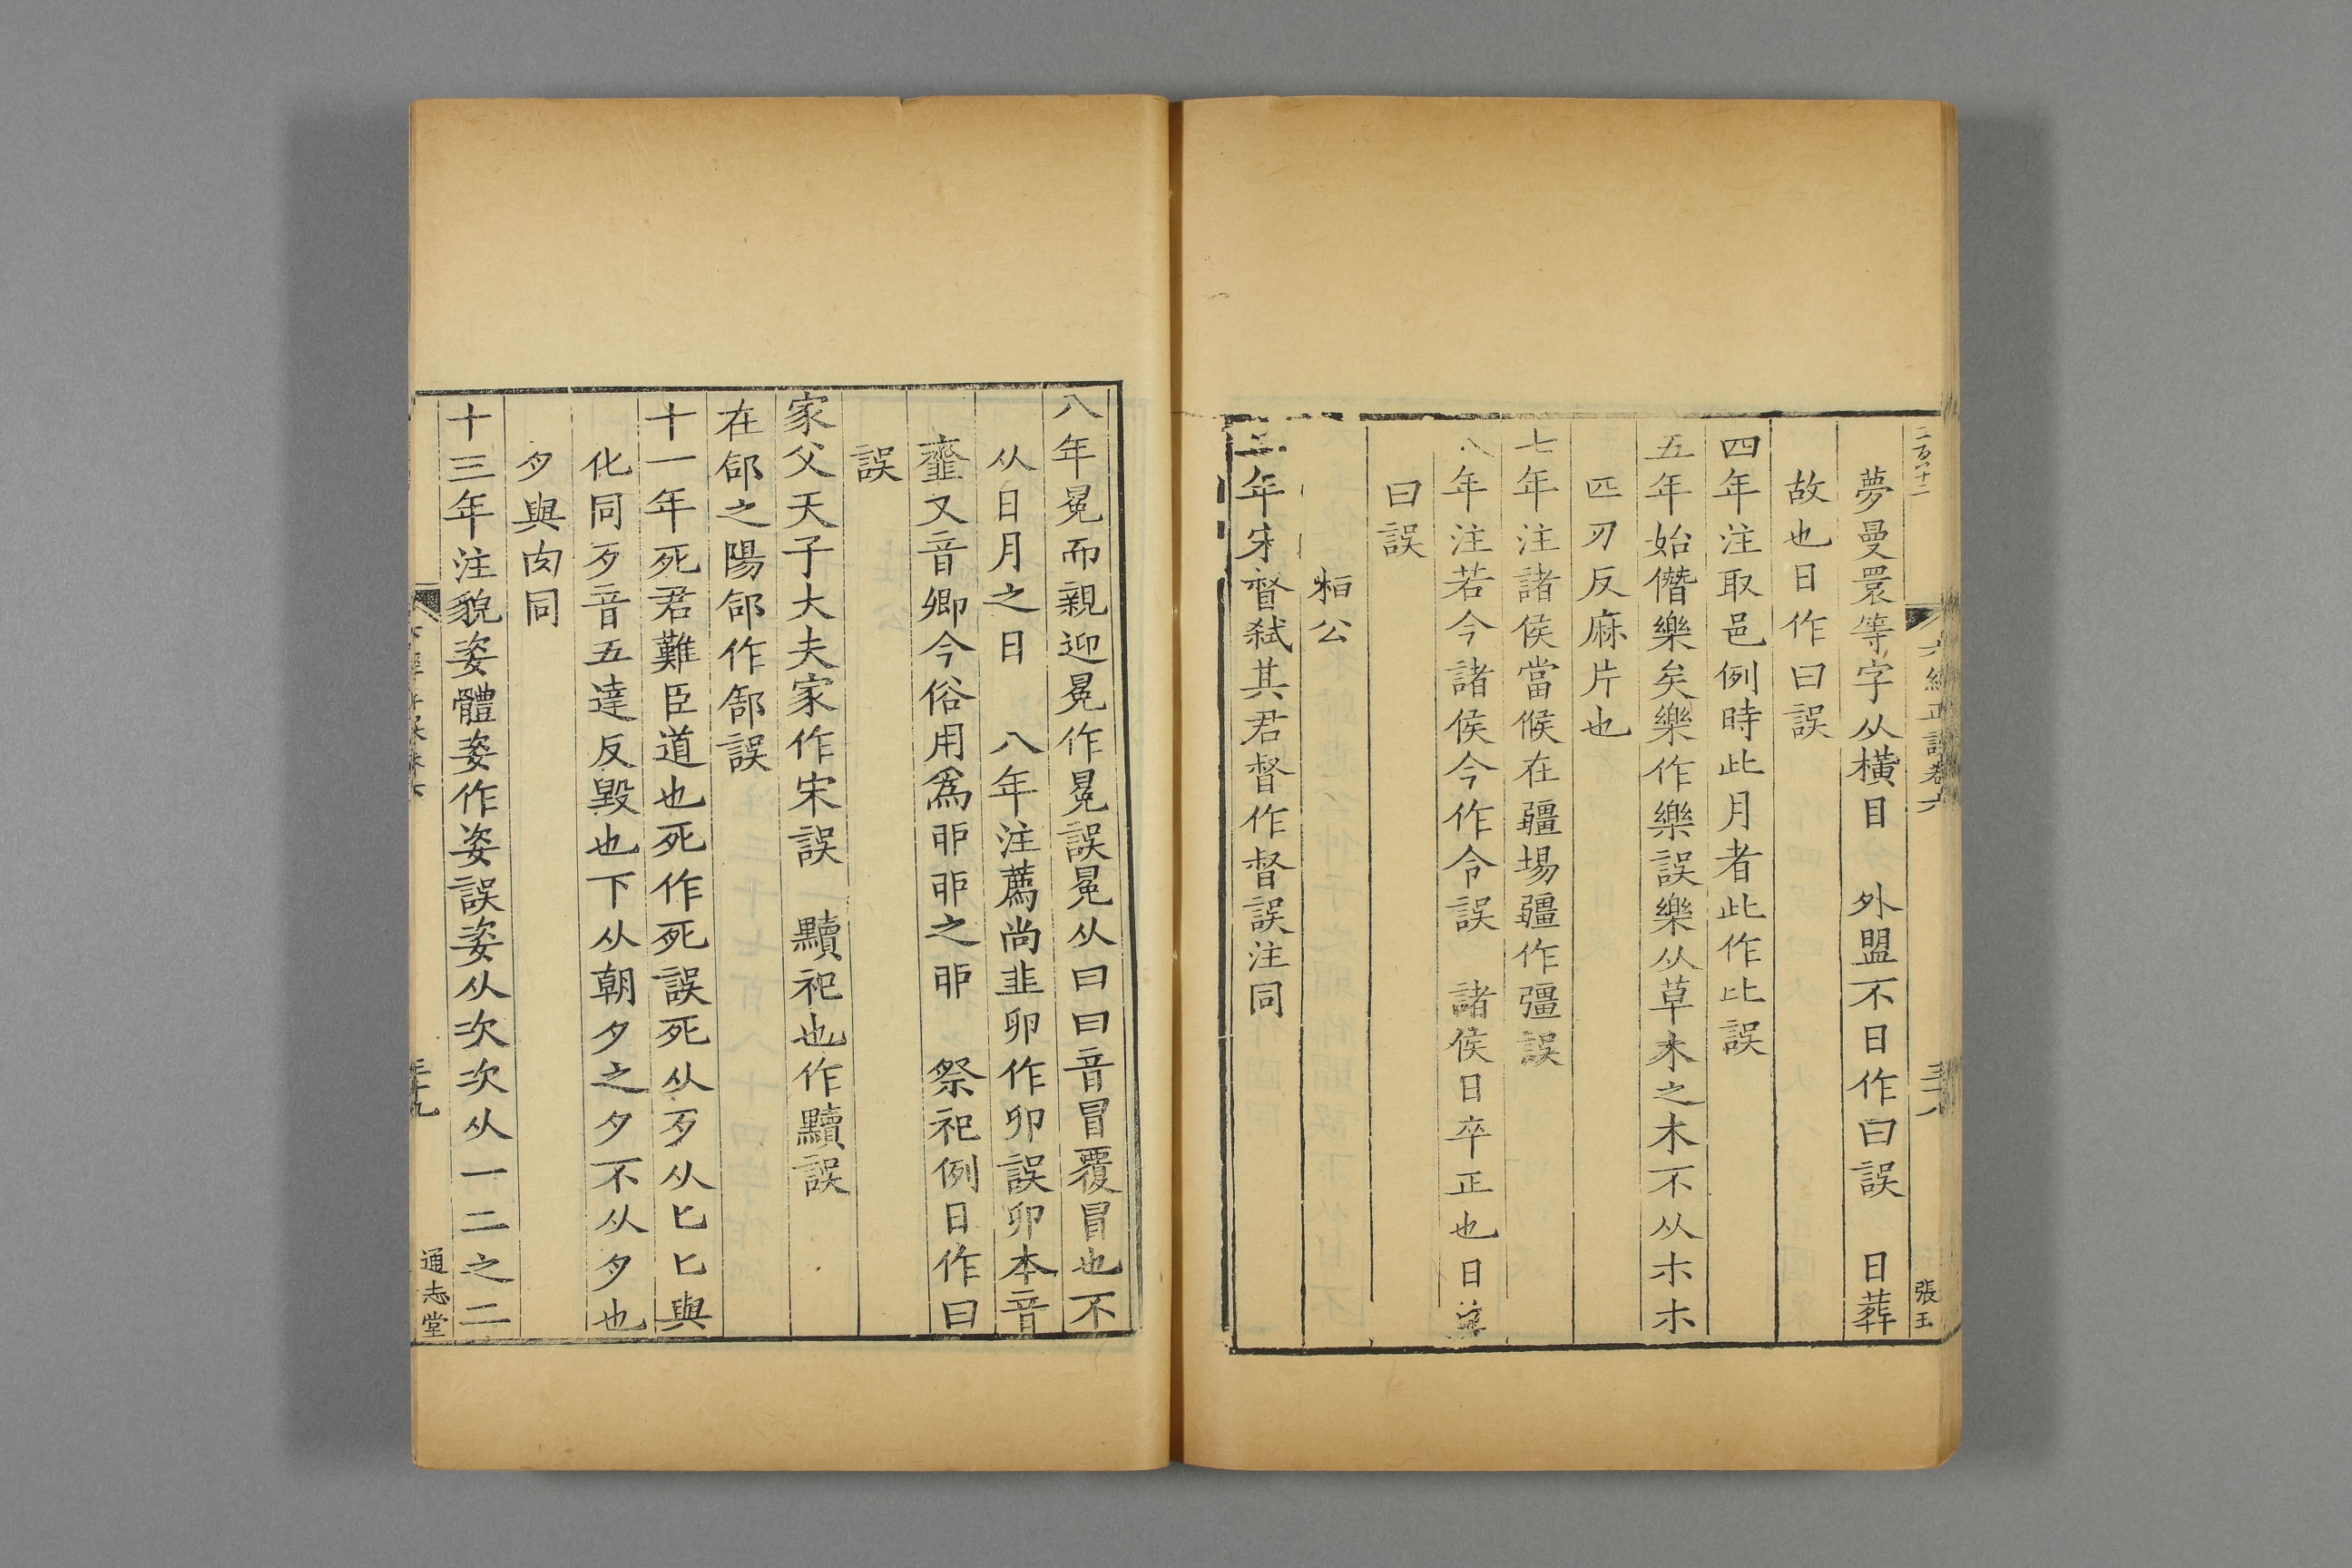 二百八十二
六經正誤卷六
三十八
張玉
夢曼睘等字从橫目　外盟不日作曰誤　日葬
故也日作曰誤
四年注取邑例時此月者此作比誤
五年始僭樂矣樂作樂誤樂从草木之木不从朩朩
匹刃反麻片也
七年注諸侯當候在疆埸疆作彊誤
八年注若今諸侯今作令誤　諸侯日卒正也日
曰誤
桓公
二年宋督弒其君督作督誤注同
八年冕而親迎冕作冕誤冕从曰曰音冒覆冒也不
从日月之日　八年注薦尚韭卵作卯誤卯本音
虀又音卿今俗用爲戼戼之戼　祭祀例日作曰
誤
家父天子大夫家作宋誤　黷祀也作黷誤
在郃之陽郃作郃誤
十一年死君難臣道也死作死誤死从歹从匕匕與
化同歹音五達反毀也下从朝夕之夕不从夕也
夕與肉同
十三年注貌姿體姿作姿誤姿从次次从一二之二
三十九
通志堂